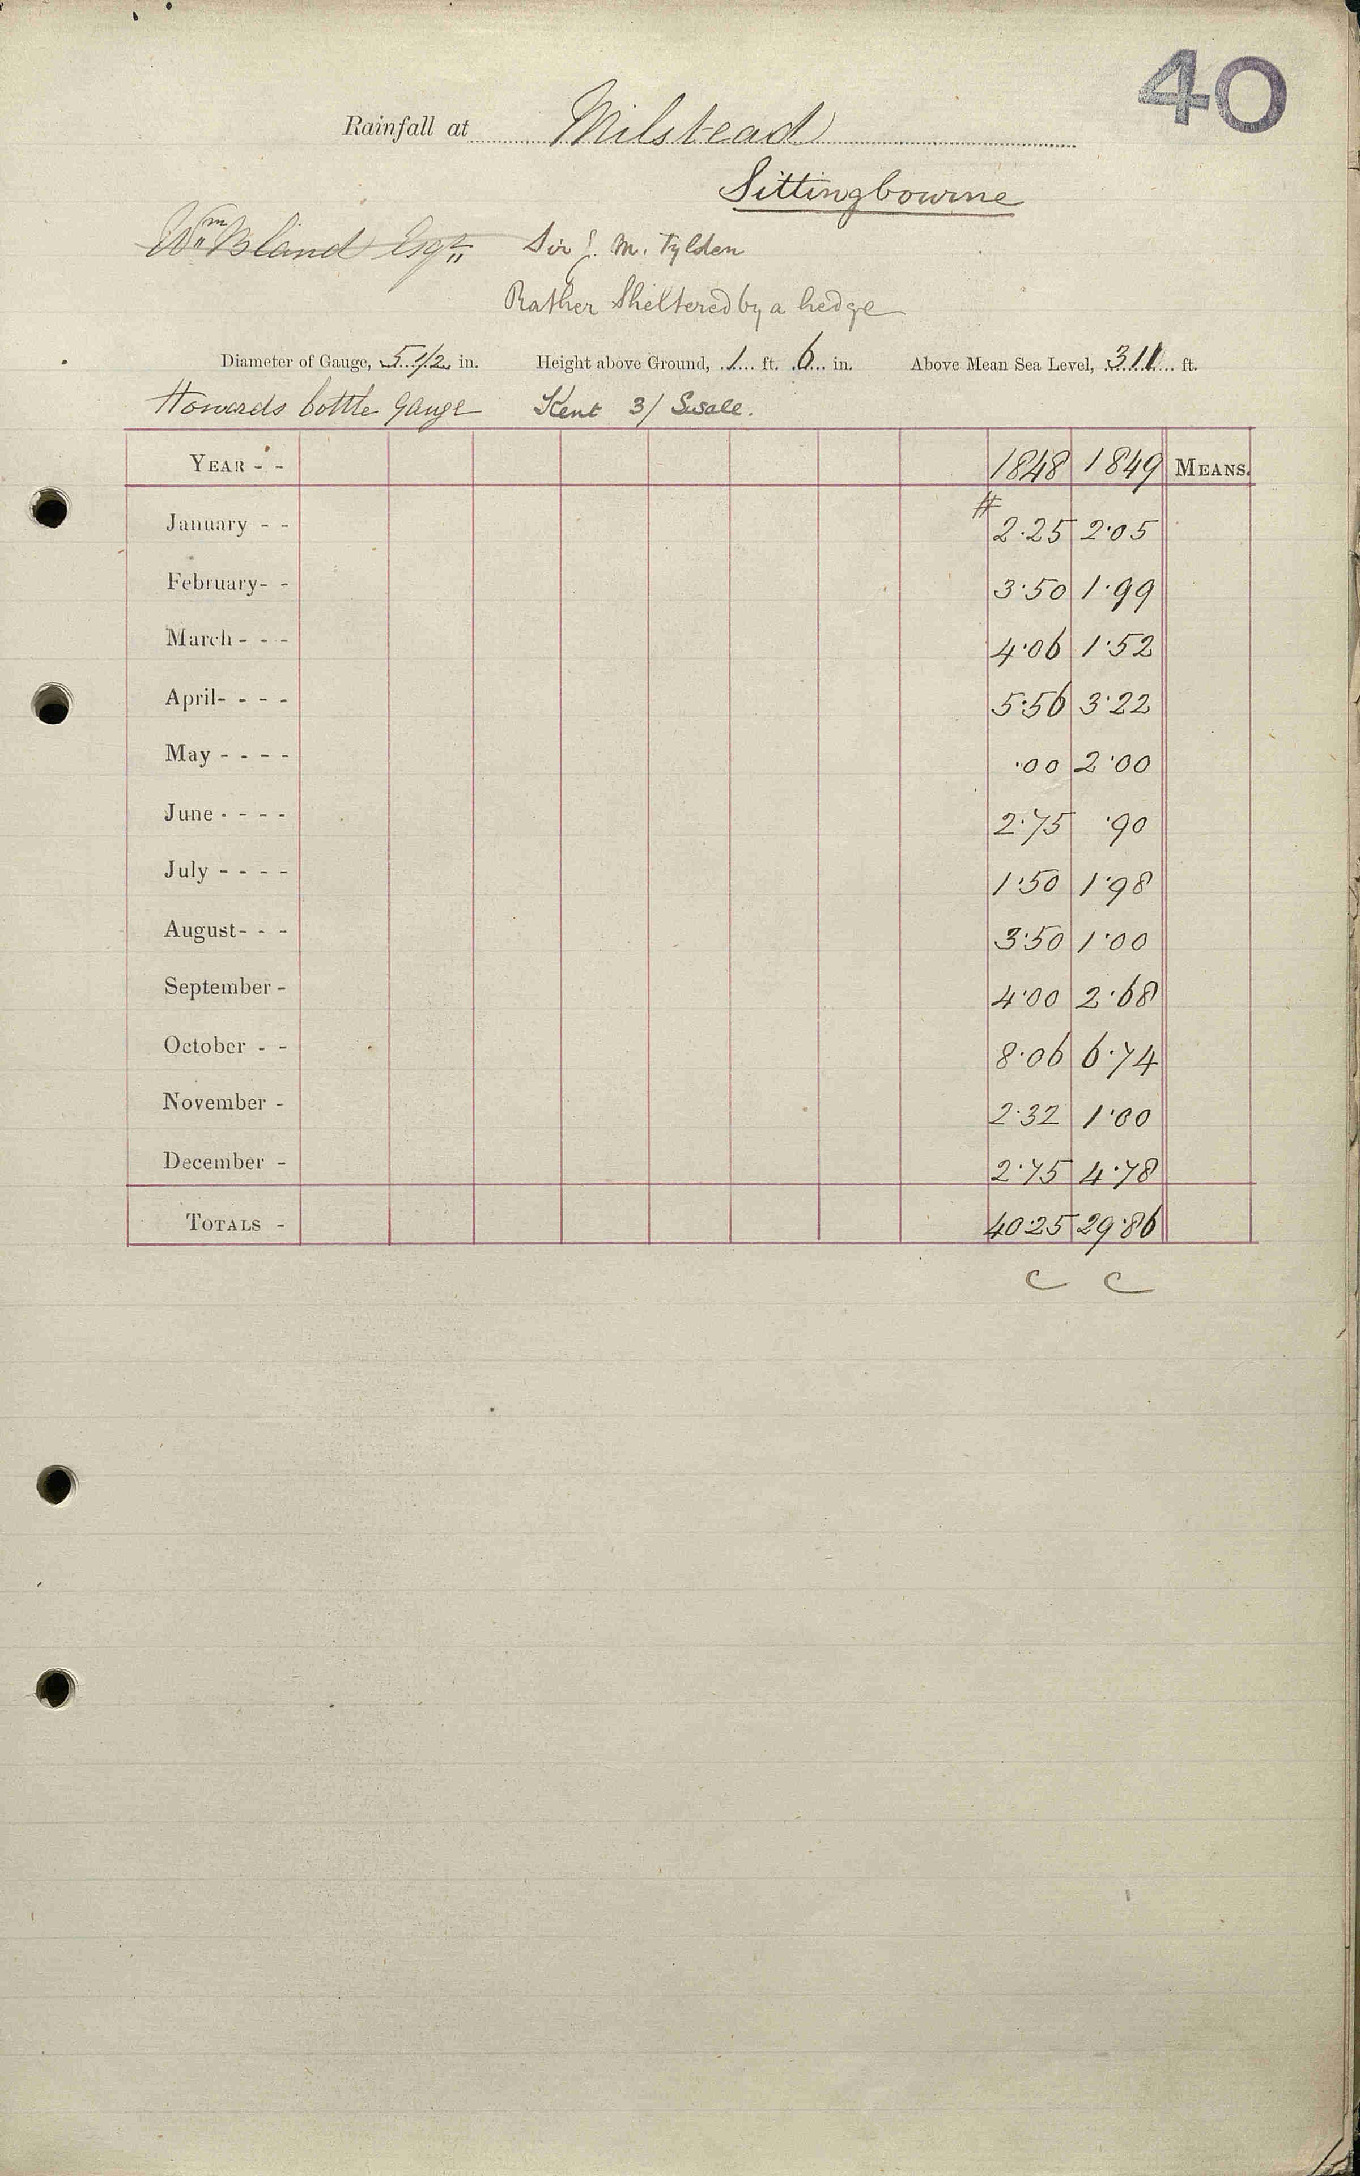 40
Rainfall at Milstead
Sittingbourne
Wm Bland Esqr Sir J. M. Tylden
Rather Sheltered by a hedge
Diameter of Gauge, 5 1/2 in. Height above Ground, 1 ft. 6 in. Above Mean Sea Level, 311 ft.
Howards bottle gauge Kent 3/ Swale.
YEAR - - 1848 1849 MEANS.
January - - # 2.25 2.05
February - - 3.50 1.99
March - - - 4.06 1.52
April - - - - 5.56 3.22
May - - - - .00 2.00
June - - - - 2.75 .90
July - - - - 1.50 1.98
August - - - 3.50 1.00
September - 4.00 2.68
October - - 8.06 6.74
November - 2.32 1.00
December - 2.75 4.78
TOTALS - 40.25 29.86
C C